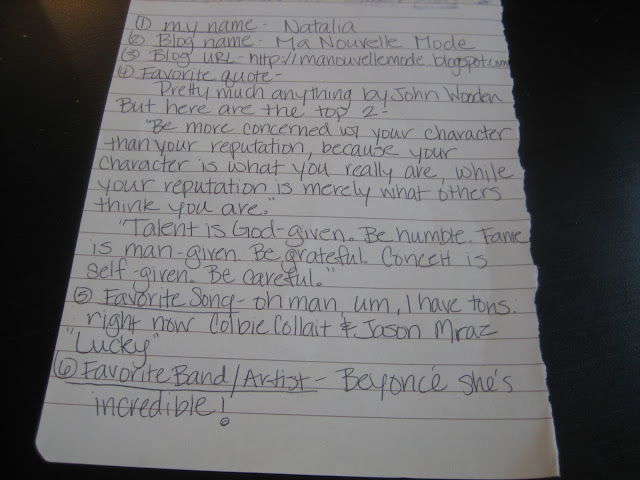 ① my name - Natalia
② Blog name - Ma Nouvelle Mode
③ Blog URL - http://manouvellemode.blogspot.com
④ Favorite quote -
Pretty much anything by John Wooden
But here are the top 2 -
"Be more concerned w/ your character
than your reputation, because your
character is what you really are, while
your reputation is merely what others
think you are."
"Talent is God-given. Be humble. Fame
is man-given. Be grateful. Conceit is
self-given. Be careful."
⑤ Favorite Song - oh man um, I have tons.
right now Colbie Collait & Jason Mraz
"Lucky"
⑥ Favorite Band/Artist - Beyoncé she's
incredible!